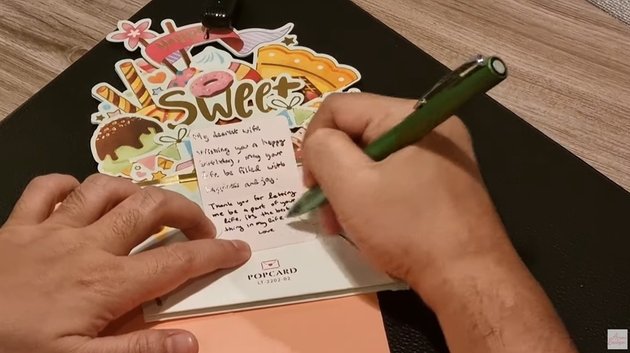 Sweet
My dearest wife,
wishing you a happy
birthday, may your
life be filled with
happiness and joy.
Thank you for letting
me be a part of your
life. it's the best
thing in my life
Love
POPCARD
LT-2202-02